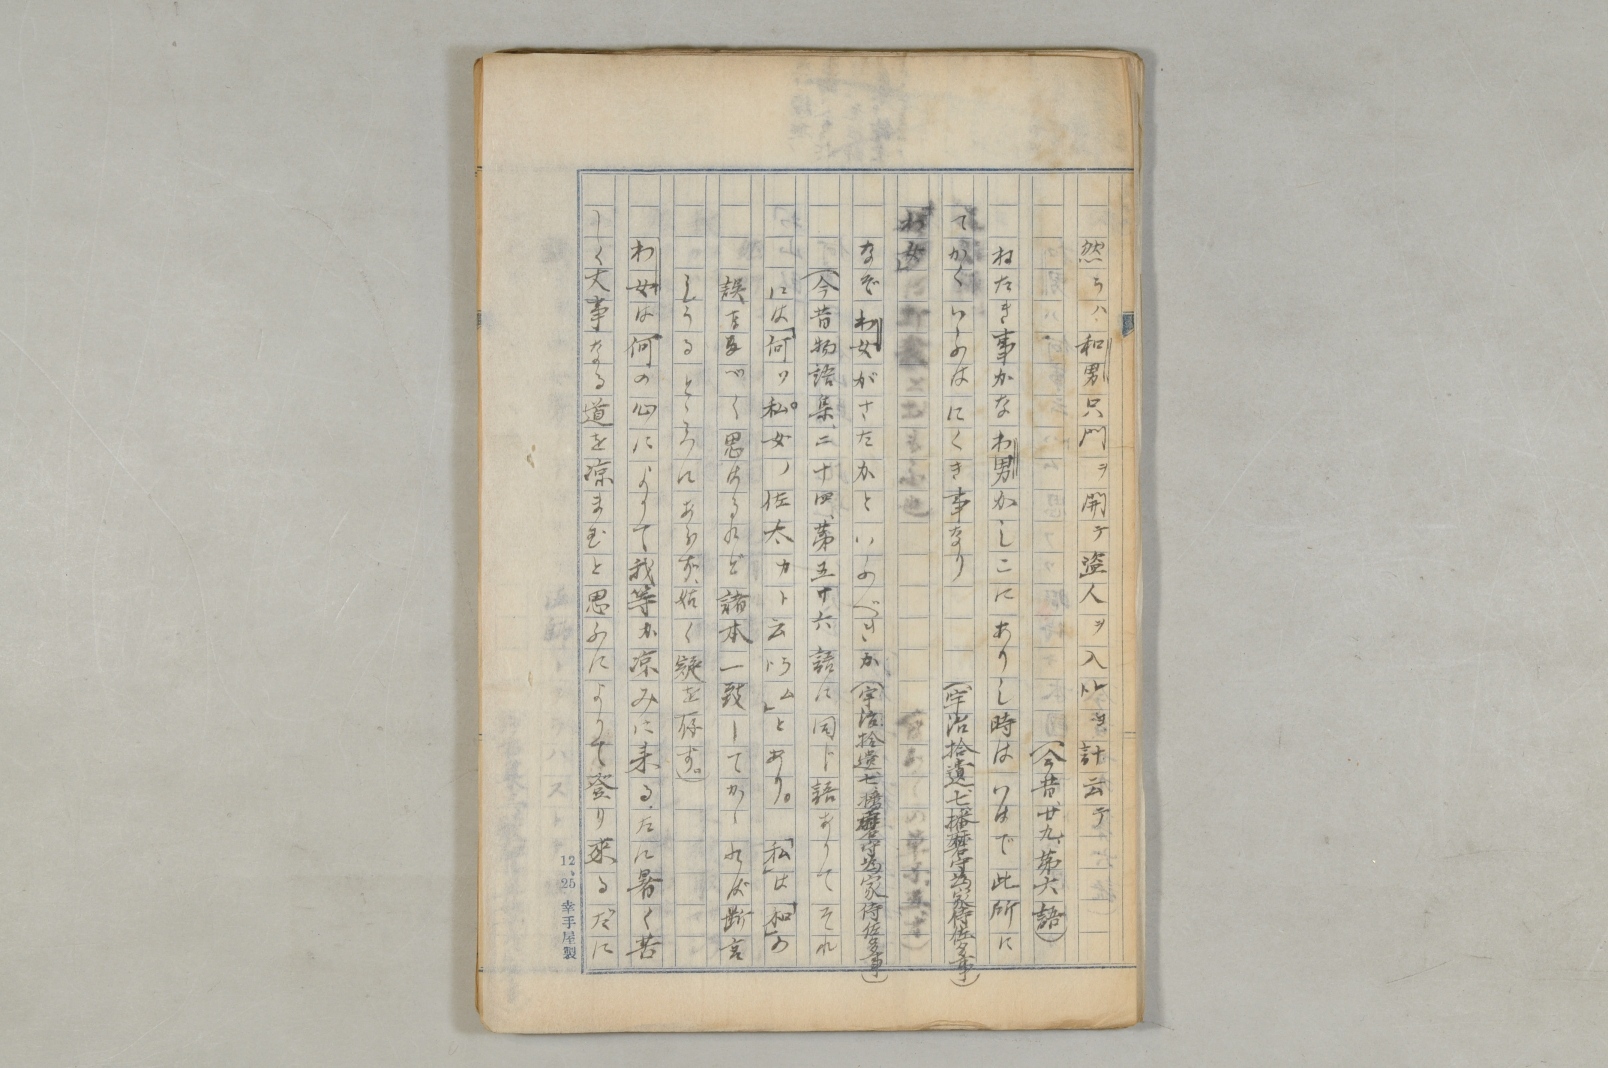 然ラハ、和男只門ヲ開テ盗人ヲ入ヨト計云テ
(今昔廿九、第六語)
ねたき事かなわ男かしこにありし時はいはで此所に
てかくいふはにくき事なり (宇治拾遺七、播磨守為家侍佐多事)
わ女
なぞわ女がさたかといふべきか (宇治拾遺七播磨守為家侍佐多事)
(今昔物語集、二十四、第五十六語に同じ語ありてそれ
には「何ソ私女ノ佐太カト云ハム」とあり。「私」は「和」の
誤なるべく思はるれど諸本一致してかくあれば断言
しうるところにあらず、姑く疑を存す。)
わ女は何の心によりて我等が凉みに来るだに暑く苦
しく大事なる道を凉まむと思ふによりて登り来るだに
12、25 幸手屋製